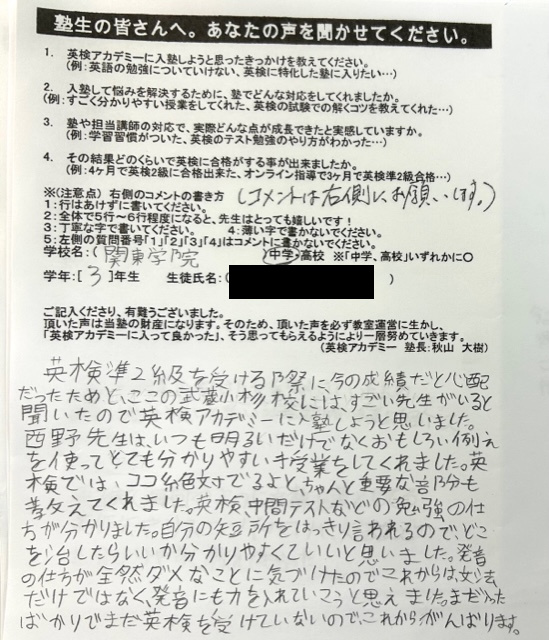 塾生の皆さんへ。あなたの声を聞かせてください。
1. 英検アカデミーに入塾しようと思ったきっかけを教えてください。
(例：英語の勉強についていけない、英検に特化した塾に入りたい…)
2. 入塾して悩みを解決するために、塾でどんな対応をしてくれましたか。
(例：すごく分かりやすい授業をしてくれた、英検の試験での解くコツを教えてくれた…)
3. 塾や担当講師の対応で、実際どんな点が成長できたと実感していますか。
(例：学習習慣がついた、英検のテスト勉強のやり方がわかった…)
4. その結果どのくらいで英検に合格がする事が出来ましたか。
(例：4ヶ月で英検2級に合格出来た、オンライン指導で3ヶ月で英検準2級合格…)
※(注意点) 右側のコメントの書き方 (コメントは右側に、お願いします。)
1：行はあけずに書いてください。
2：全体で5行～6行程度になると、先生はとっても嬉しいです！
3：丁寧な字で書いてください。 4：薄い字で書かないでください。
5：左側の質問番号「1」「2」「3」「4」はコメントに書かないでください。
学校名：( 関東学院 )中学・高校 ※「中学、高校」いずれかに〇
学年：[ 3 ]年生 生徒氏名：( )
ご記入くださり、有難うございました。
頂いた声は当塾の財産になります。そのため、頂いた声を必ず教室運営に生かし、
「英検アカデミーに入って良かった」、そう思ってもらえるようにより一層努めていきます。
(英検アカデミー 塾長：秋山 大樹)
英検準2級を受ける際に今の成績だと心配
だったためと、ここの武蔵小杉校には、すごい先生がいると
聞いたので英検アカデミーに入塾しようと思いました。
西野先生は、いつも明るいだけでなくおもしろい例え
を使ってとても分かりやすい授業をしてくれました。英
検では、ココ絶対でるよと、ちゃんと重要な部分も
教えてくれました。英検、中間テストなどの勉強の仕
方が分かりました。自分の短所をはっきり言われるので、どこ
を治したらいいか分かりやすくていいと思いました。発音
の仕方が全然ダメなことに気づけたのでこれからは、文法
だけではなく、発音にも力を入れていこうと思えました。まだ入った
ばかりでまだ英検を受けていないので、これからがんばります。